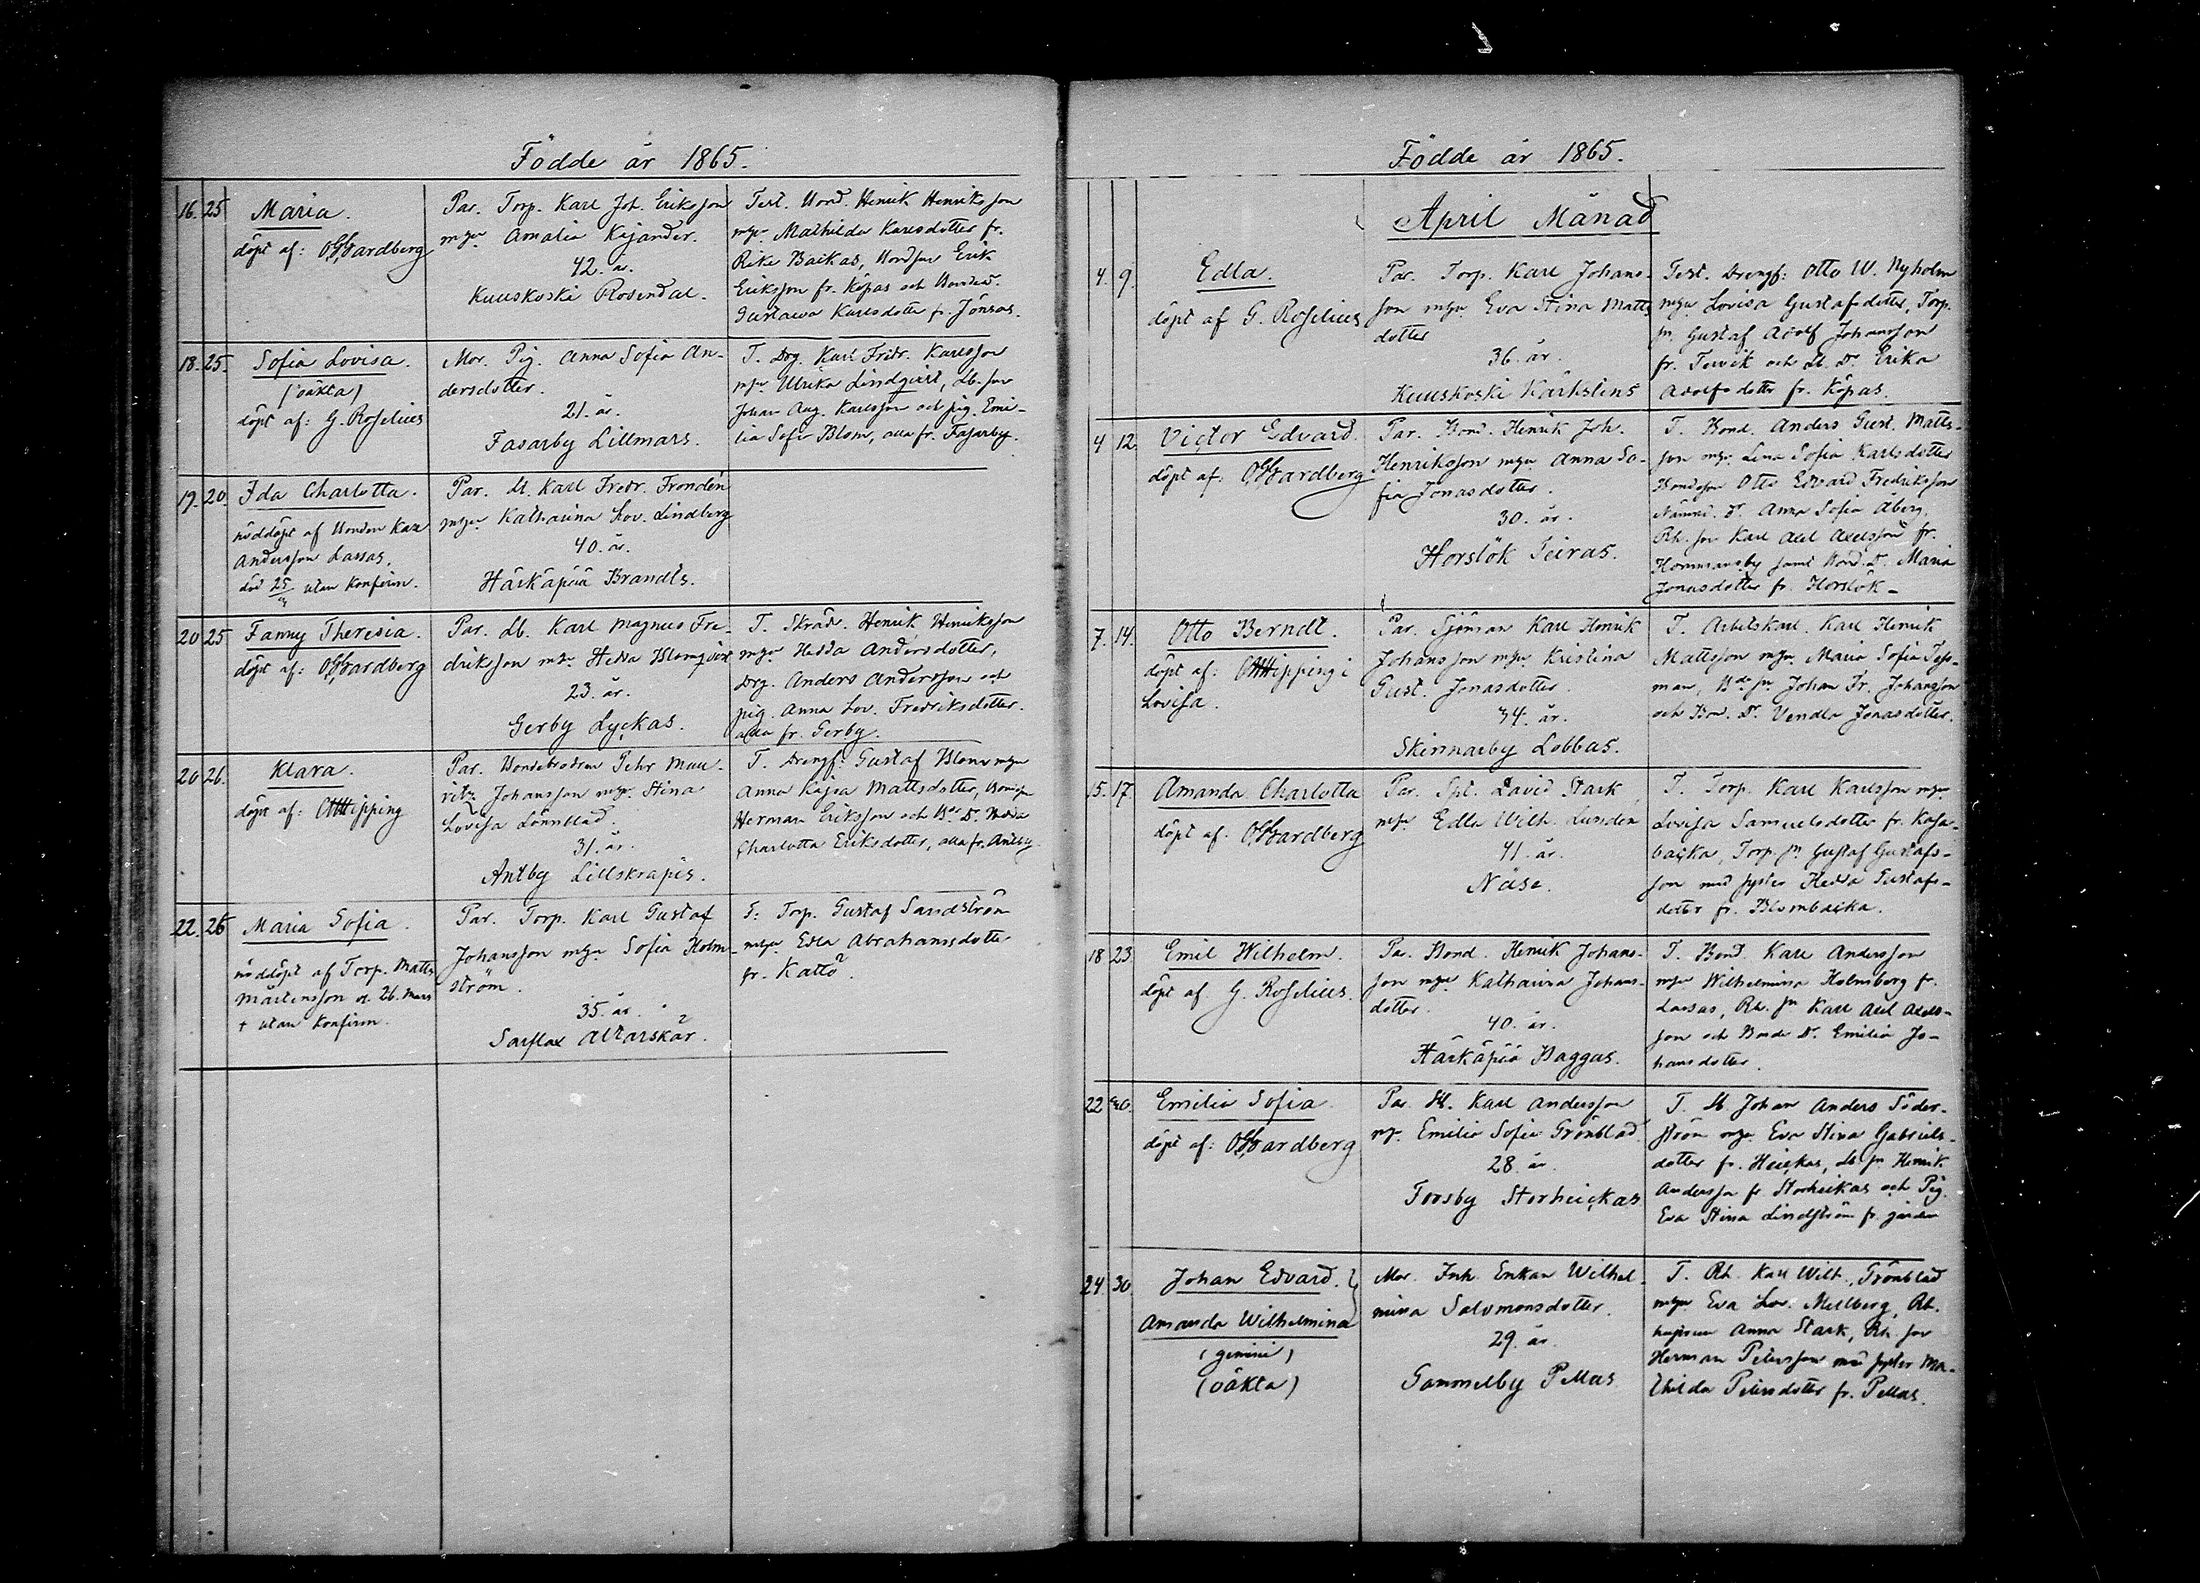 Födde år 1865.
16. 25 Maria.
döpt af: O.G. Hardberg
Par. Torp. Karl Joh. Eriksson
m. hu Amalia Kijander.
42. år.
Kuuskoski Rosendal.
Test. Bond. Henrik Henriksson
m. hu Mathilda Karlsdotter fr.
Rike Backas, Bondson Erik
Eriksson fr. Köpas och Bonded.
Gustawa Karlsdotter fr. Jonsas.
18. 25. Sofia Lovisa.
(oäkta)
döpt af: G. Roselius
Mor. Pig. Anna Sofia An-
dersdotter.
21. år.
Fasarby Lillmars.
T. Drg. Karl Fredr. Karlsson
m. hu Ulrika Lindqvist, Lb. son
Johan Aug. Karlsson och pig. Emi-
lia Sofi Blom, alla fr. Fasarby.
19. 20. Ida Charlotta.
nöddöpt af Bonden Karl
Andersson Lassas.
död 25/3 utan konfirm.
Par. Lt. Karl Fredr. Frondén
m. hu Katharina Lov. Lindberg
40. år.
Härkäpää Brandts.
20 25 Fanny Theresia.
döpt af: O.G. Hardberg
Par. Lb. Karl Magnus Fre-
driksson m. hu Hedda Blomqvist
23. år.
Gerby Lyckas.
T. Skräd. Henrik Henriksson
m. hu Hedda Andersdotter,
Drg. Anders Andersson och
pig. Anna Lov. Fredriksdotter.
alla fr. Gerby.
20 26. Klara.
döpt af: Hipping
Par. Bondebrodren Pehr Mau-
ritz Johansson m. hu Stina
Lovisa Lönnblad.
31. år.
Antby Lillskrapis.
T. Drengf. Gustaf Blom m. hu
Anna Kajsa Mattsdotter, Bondson
Herman Eriksson och B. D. Hedda
Charlotta Eriksdotter, alla fr. Antby.
22. 26 Maria Sofia.
nöddöpt af Torp. Matts
Mårtensson d. 26. Mars
† utan konfirm.
Par. Torp. Karl Gustaf
Johansson m. hu Sofia Holm-
ström.
35. år.
Sarflax Altarskär.
T. Torp. Gustaf Sandström
m. hu Edla Abrahamsdotter
fr. Kattö.
Födde år 1865.
April Månad
4. 9. Edla.
döpt af G. Roselius
Par. Torp. Karl Johans-
son m. hu Eva Stina Matts
dotter
36. år.
Kuuskoski Karkslins
Test. Drengf: Otto W. Nyholm
m. hu Lovisa Gustafsdotter, Torp.
sn. Gustaf Adolf Johansson
fr. Tervik och Lt. D. Erika
Adolfsdotter fr. Köpas.
4 12. Victor Edvard.
döpt af: O.G. Hardberg
Par. Bond. Henrik Joh.
Henriksson m. hu Anna So-
fia Jonasdotter.
30. år.
Horslök Teiras.
T. Bond. Anders Gust. Matts-
son m. hu Lena Sofia Karlsdotter
Bondson Otto Edvard Fredriksson
Nämnd. D. Anna Sofia Åberg.
Rh. son Karl Axel Axelsson fr.
Hommansby samt Bond. D. Maria
Jonasdotter fr. Horslök-
7. 14. Otto Berndt.
döpt af: Hipping i
Lovisa.
Par. Sjöman Karl Henrik
Johansson m. hu Kristina
Gust. Jonasdotter.
34. år.
Skinnarby Lobbas.
T. Arbetskarl. Karl Henrik
Mattsson m. hu Maria Sofia Tess-
man, B.de sn Johan Fr. Johansson
och Bond. D. Vendla Jonasdotter.
15. 17. Amanda Charlotta
döpt af: O.G. Hardberg
Par. Spt. David Stark
m. hu Edla Wilh. Lundén
41. år.
Näse.
T. Torp. Karl Karlsson m. hu
Lovisa Samuelsdotter fr. Kasa-
backa, Torp. sn Gustaf Gustafs-
son med syster Hedda Gustafs-
dotter fr. Blombacka.
18 23 Emil Wilhelm.
döpt af G. Roselius.
Par. Bond. Henrik Johans-
son m. hu Katharina Johans-
dotter.
40. år.
Härkäpää Baggas.
T. Bond Karl Andersson
m. hu Wilhelmina Holmberg fr.
Lassas, Rh. sn Karl Axel Axels-
son och Bonde D. Emilia Jo-
hansdotter.
22 30. Emilia Sofia
döpt af: O.G. Hardberg
Par. Karl Andersson
m. hu Emilia Sofia Grönblad
28. år
Torsby Storheickas
T. Lb Johan Anders Söder-
ström m. hu Eva Stina Gabriels-
dotter fr. Heickas, Lb sn Henrik
Andersson fr Storheikas och Pig.
Eva Stina Lindström fr. gården
24 30. Johan Edvard.
Amanda Wilhelmina
(gemini)
(oäkta)
Mor. Inh. Enkan Wilhel-
mina Salomonsdotter.
29. år
Gammelby Pellas
T. Rh. Karl Wilh. Grönblad
m. hu Eva Lov. Mellberg, Rh.
hustrun Anna Stark, Rh son
Herman Petersson med syster Ma-
thilda Petersdotter fr. Pellas.